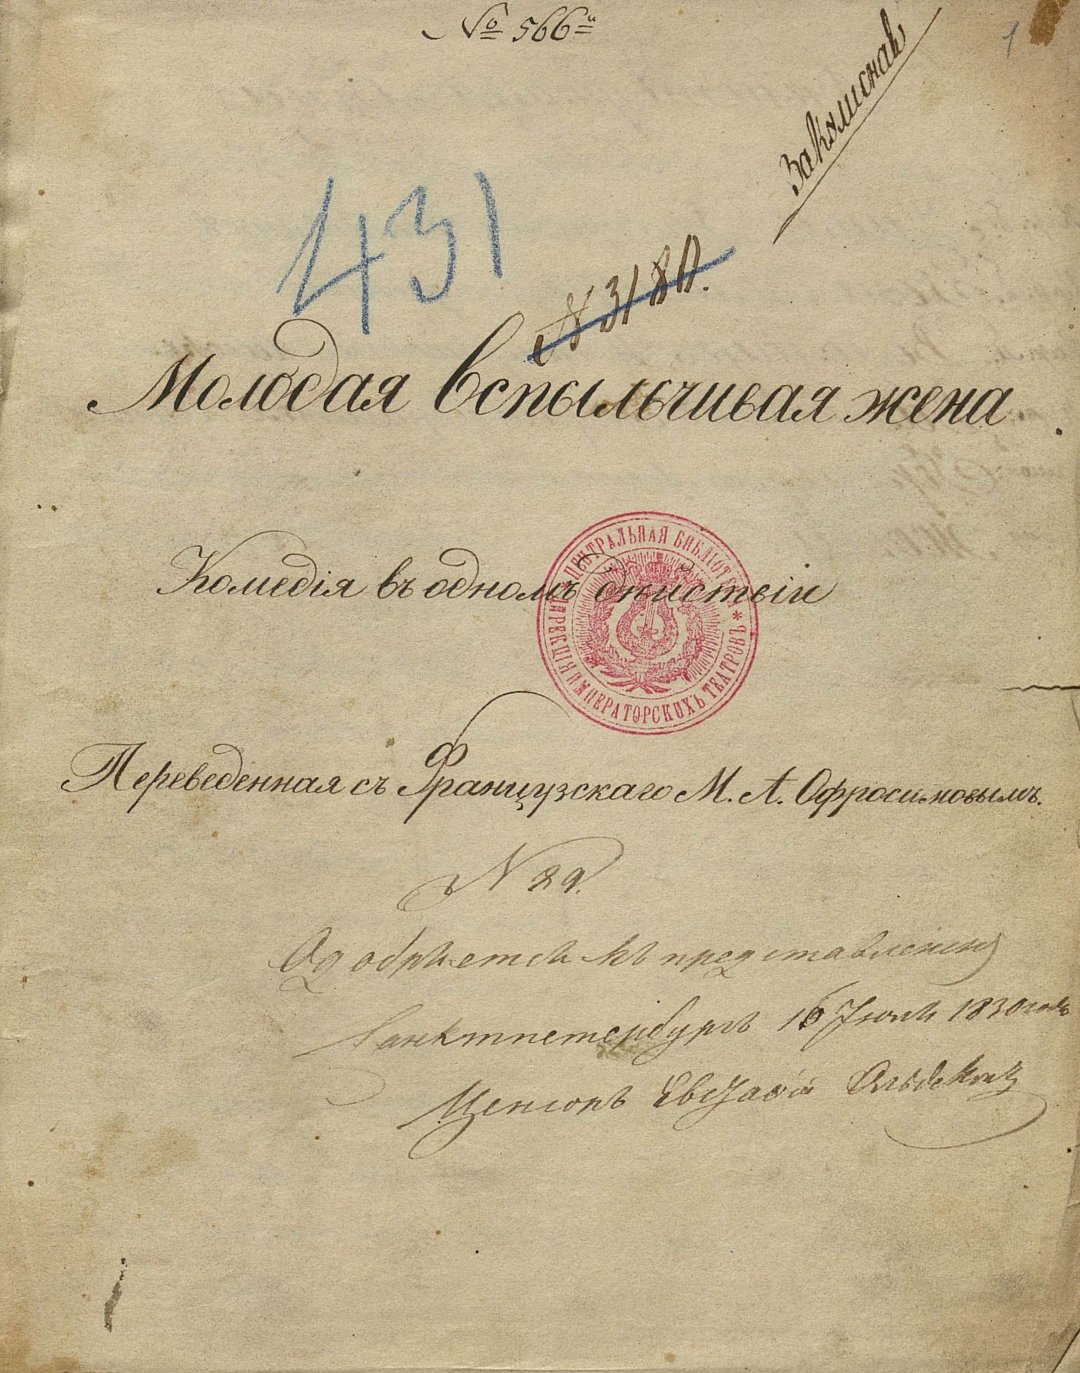 № 566й
1
431
№ 3180.
Молодая вспыльчивая жена
Комедія въ одномъ дѣйствіи
ЦЕНТРАЛЬНАЯ БИБЛІОТЕКА * ДИРЕКЦІЯ ИМПЕРАТОРСКИХЪ ТЕАТРОВЪ *
Переведенная съ Французскаго М. А. Офросимовымъ.
N 89.
Одобряется къ представленію
Санктпетербургъ 16 Іюля 1830 года
Ценсоръ Евстафій Ольдекопъ